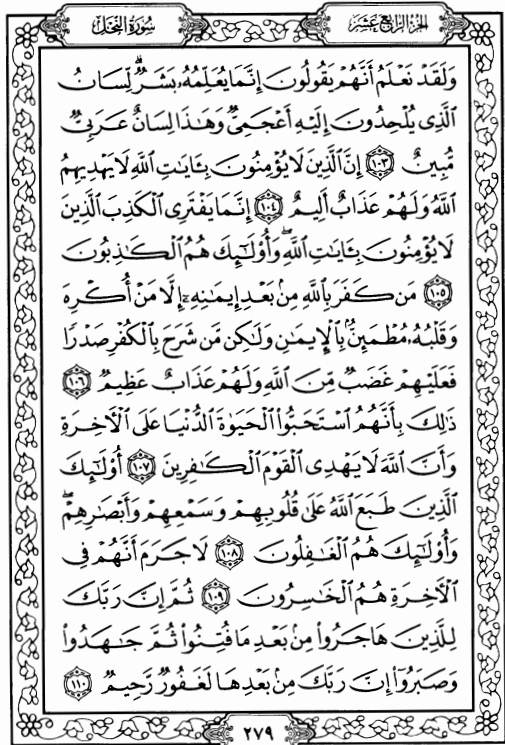 الجزء الرابع عشر
سورة النحل
وَلَقَدْ نَعْلَمُ أَنَّهُمْ يَقُولُونَ إِنَّمَا يُعَلِّمُهُۥ بَشَرٌۗ لِّسَانُ
ٱلَّذِى يُلْحِدُونَ إِلَيْهِ أَعْجَمِىٌّ وَهَٰذَا لِسَانٌ عَرَبِىٌّ
مُّبِينٌ ١٠٣ إِنَّ ٱلَّذِينَ لَا يُؤْمِنُونَ بِـَٔايَٰتِ ٱللَّهِ لَا يَهْدِيهِمُ
ٱللَّهُ وَلَهُمْ عَذَابٌ أَلِيمٌ ١٠٤ إِنَّمَا يَفْتَرِى ٱلْكَذِبَ ٱلَّذِينَ
لَا يُؤْمِنُونَ بِـَٔايَٰتِ ٱللَّهِۖ وَأُو۟لَٰٓئِكَ هُمُ ٱلْكَٰذِبُونَ
١٠٥ مَن كَفَرَ بِٱللَّهِ مِنۢ بَعْدِ إِيمَٰنِهِۦٓ إِلَّا مَنْ أُكْرِهَ
وَقَلْبُهُۥ مُطْمَئِنٌّۢ بِٱلْإِيمَٰنِ وَلَٰكِن مَّن شَرَحَ بِٱلْكُفْرِ صَدْرًا
فَعَلَيْهِمْ غَضَبٌ مِّنَ ٱللَّهِ وَلَهُمْ عَذَابٌ عَظِيمٌ ١٠٦
ذَٰلِكَ بِأَنَّهُمُ ٱسْتَحَبُّوا۟ ٱلْحَيَوٰةَ ٱلدُّنْيَا عَلَى ٱلْءَاخِرَةِ
وَأَنَّ ٱللَّهَ لَا يَهْدِى ٱلْقَوْمَ ٱلْكَٰفِرِينَ ١٠٧ أُو۟لَٰٓئِكَ
ٱلَّذِينَ طَبَعَ ٱللَّهُ عَلَىٰ قُلُوبِهِمْ وَسَمْعِهِمْ وَأَبْصَٰرِهِمْۖ
وَأُو۟لَٰٓئِكَ هُمُ ٱلْغَٰفِلُونَ ١٠٨ لَا جَرَمَ أَنَّهُمْ فِى
ٱلْءَاخِرَةِ هُمُ ٱلْخَٰسِرُونَ ١٠٩ ثُمَّ إِنَّ رَبَّكَ
لِلَّذِينَ هَاجَرُوا۟ مِنۢ بَعْدِ مَا فُتِنُوا۟ ثُمَّ جَٰهَدُوا۟
وَصَبَرُوٓا۟ إِنَّ رَبَّكَ مِنۢ بَعْدِهَا لَغَفُورٌ رَّحِيمٌ ١١٠
٢٧٩